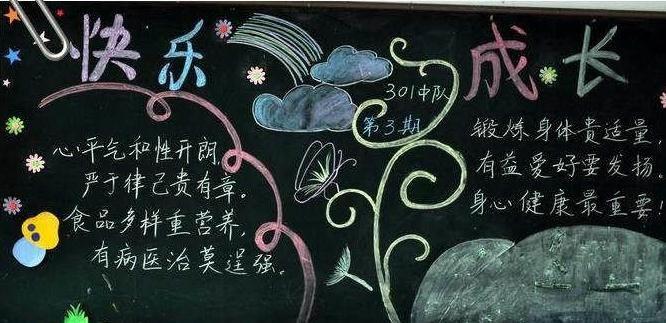 快乐成长
301中队
第3期
心平气和性开朗，
严于律己贵有章。
食品多样重营养，
有病医治莫逞强。
锻炼身体贵适量，
有益爱好要发扬。
身心健康最重要！